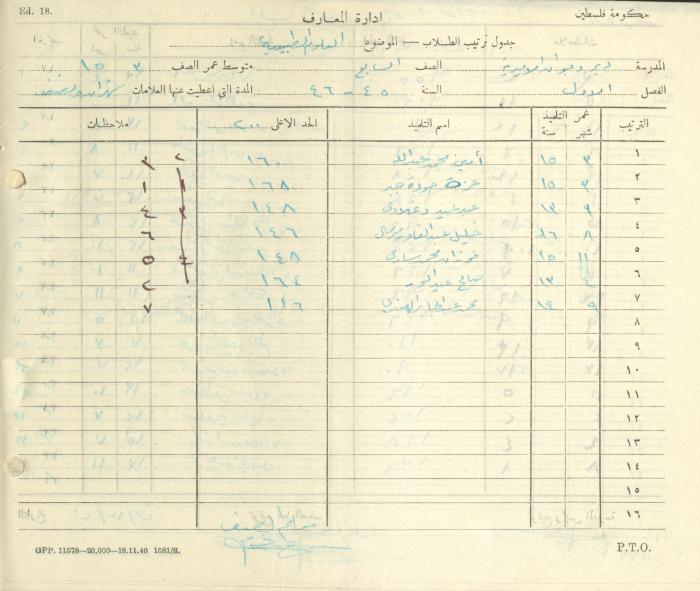 Ed. 18.
حكومة فلسطين
ادارة المعارف
جدول ترتيب الطلاب — الموضوع العلوم الطبيعية
المدرسة دير ديوان الاميرية الصف السابع متوسط عمر الصف ٣ ١٥
الفصل الاول السنة ٤٥ - ٤٦ المدة التي اعطيت عنها العلامات شهران ونصف
الترتيب عمر التلميذ شهر سنة اسم التلميذ الحد الاعلى ٢٠٠ ملاحظات
١ ٣ ١٥ أمين محمد عبدالله ١٦٠ ٢ ٣
٢ ٣ ١٥ عزت جودة جبر ١٦٨ ١
٣ ٩ ١٣ ١٤٨ ٤
٤ ٨ ١٦ خليل عبدالقادر ١٤٦ ٦
٥ ١١ ١٥ فوزان محمد ١٤٨ ٥
٦ ٤ ١٣ صالح ١٦٤ ٢
٧ ٩ ١٤ محمد عبدالجبار ١١٦ ٧
٨
٩
١٠
١١
١٢
١٣
١٤
١٥
١٦
معلم الصف
GPP. 11578—20,000—18.11.40 1581/S.
P.T.O.